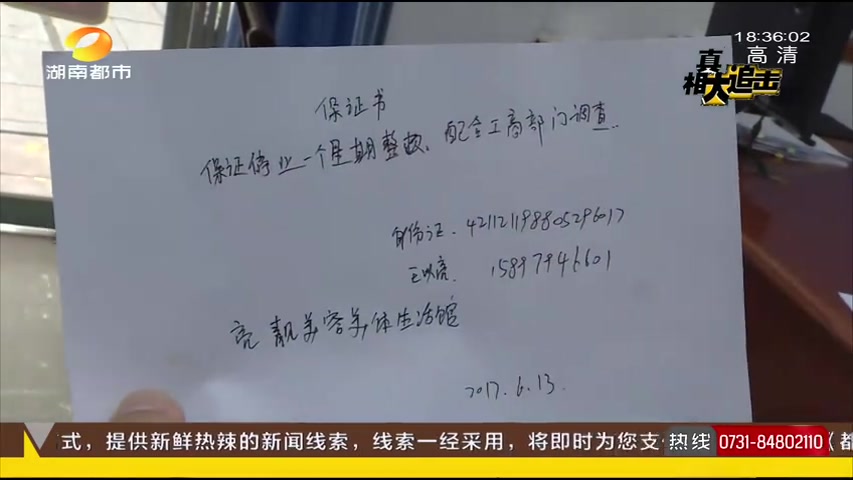 18:36:02
高清
湖南都市
真相大追击
保证书
保证停业一个星期整顿、配合工商部门调查..
身份证.421121198805296017
王以亮. 15897946601
亮靓美容美体生活馆
2017.6.13.
式，提供新鲜热辣的新闻线索，线索一经采用，将即时为您支
热线 0731-84802110
《都